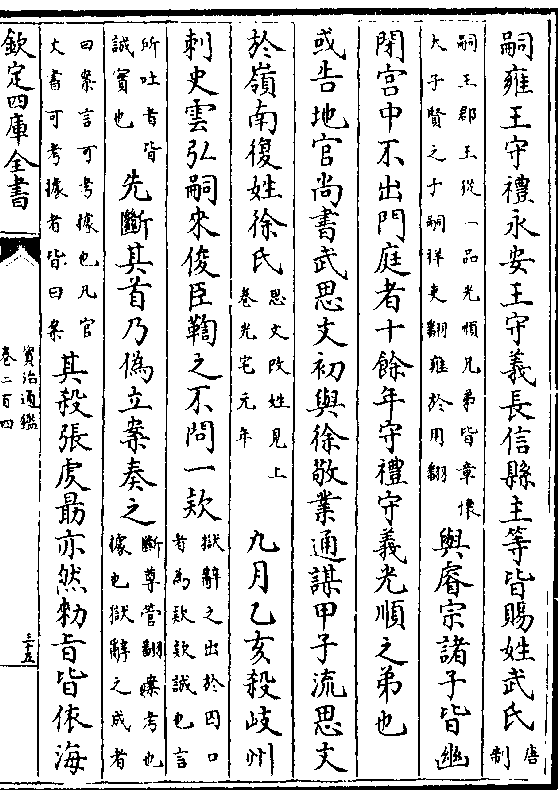 嗣雍王守禮永安王守義長信縣主等皆賜姓武氏唐制
嗣王郡王從一品光順兄弟皆章懷太子賢之子嗣祥吏翻雍於用翻與睿宗諸子皆幽
閉宫中不出門庭者十餘年守禮守義光順之弟也
或告地官尚書武思文初與徐敬業通謀甲子流思文
於嶺南復姓徐氏思文改姓見上卷光宅元年九月乙亥殺岐州
刺史雲弘嗣來俊臣鞫之不問一欵獄辭之出於囚口者為欵欵誠也言
所吐者皆誠實也先斷其首乃偽立案奏之斷尊管翻案考也據也獄辭之成者
曰案言可考據也凡官文書可考據者皆曰案其殺張虔朂亦然勑旨皆依海
欽定四庫全書
資治通鑑
卷二百四
三十五